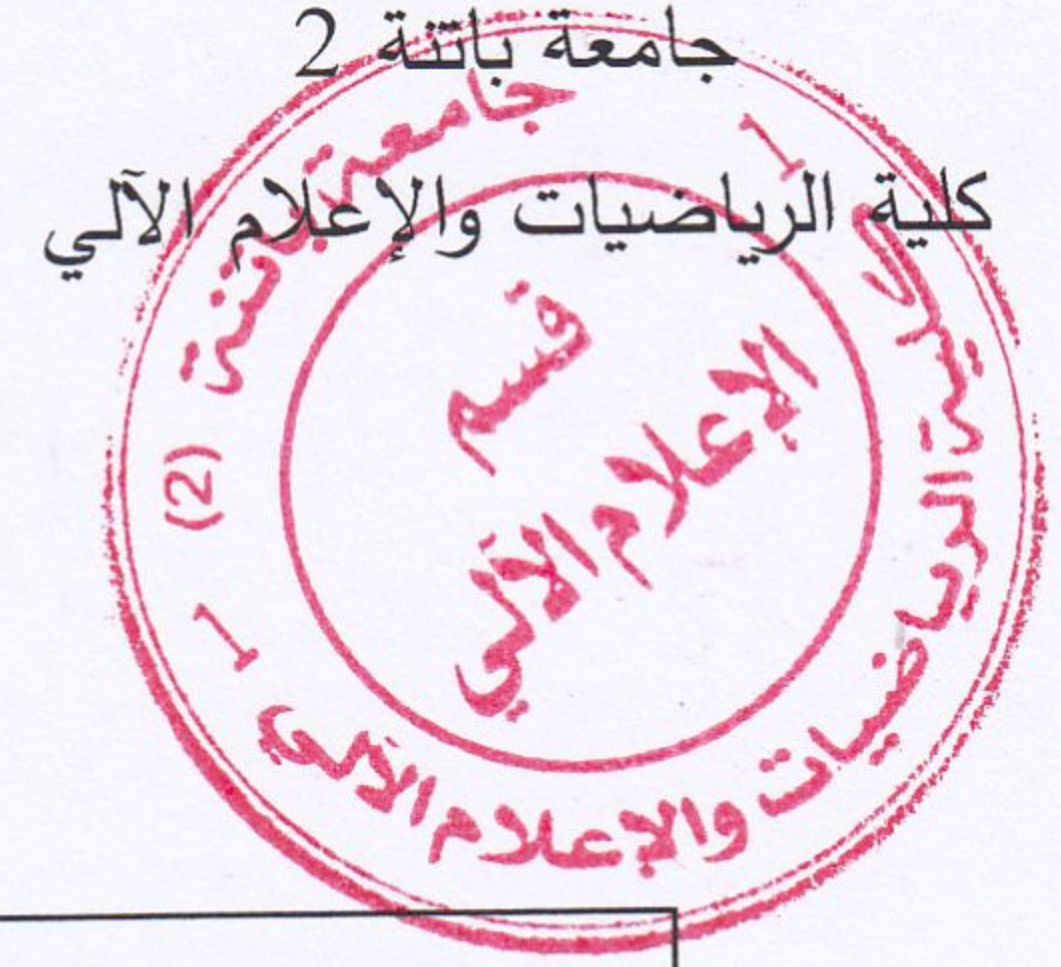 جامعة باتنة 2
كلية الرياضيات والإعلام الآلي
جامعة باتنة (2)
كلية الرياضيات والإعلام الآلي
1
1
قسم
الإعلام الآلي